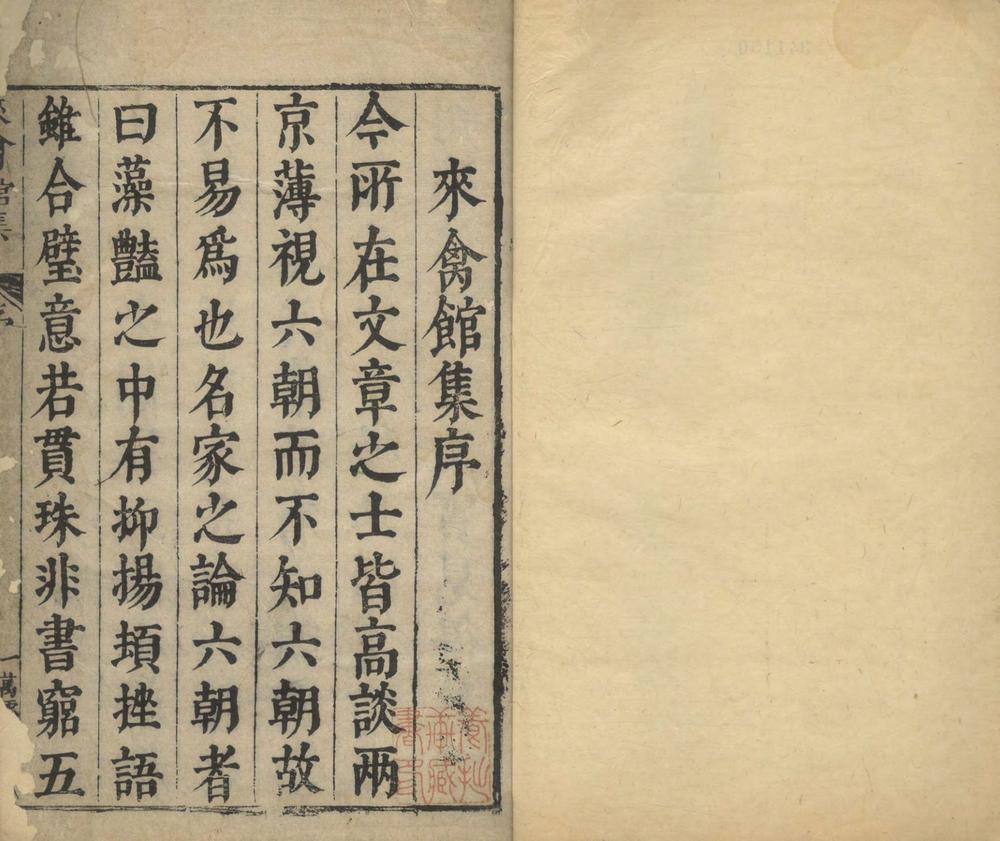 來禽館集序
今所在文章之士皆高談兩
京薄視六朝而不知六朝故
不易爲也名家之論六朝者
曰藻豔之中有抑揚頓挫語
雖合璧意若貫珠非書窮五
館集
序
一